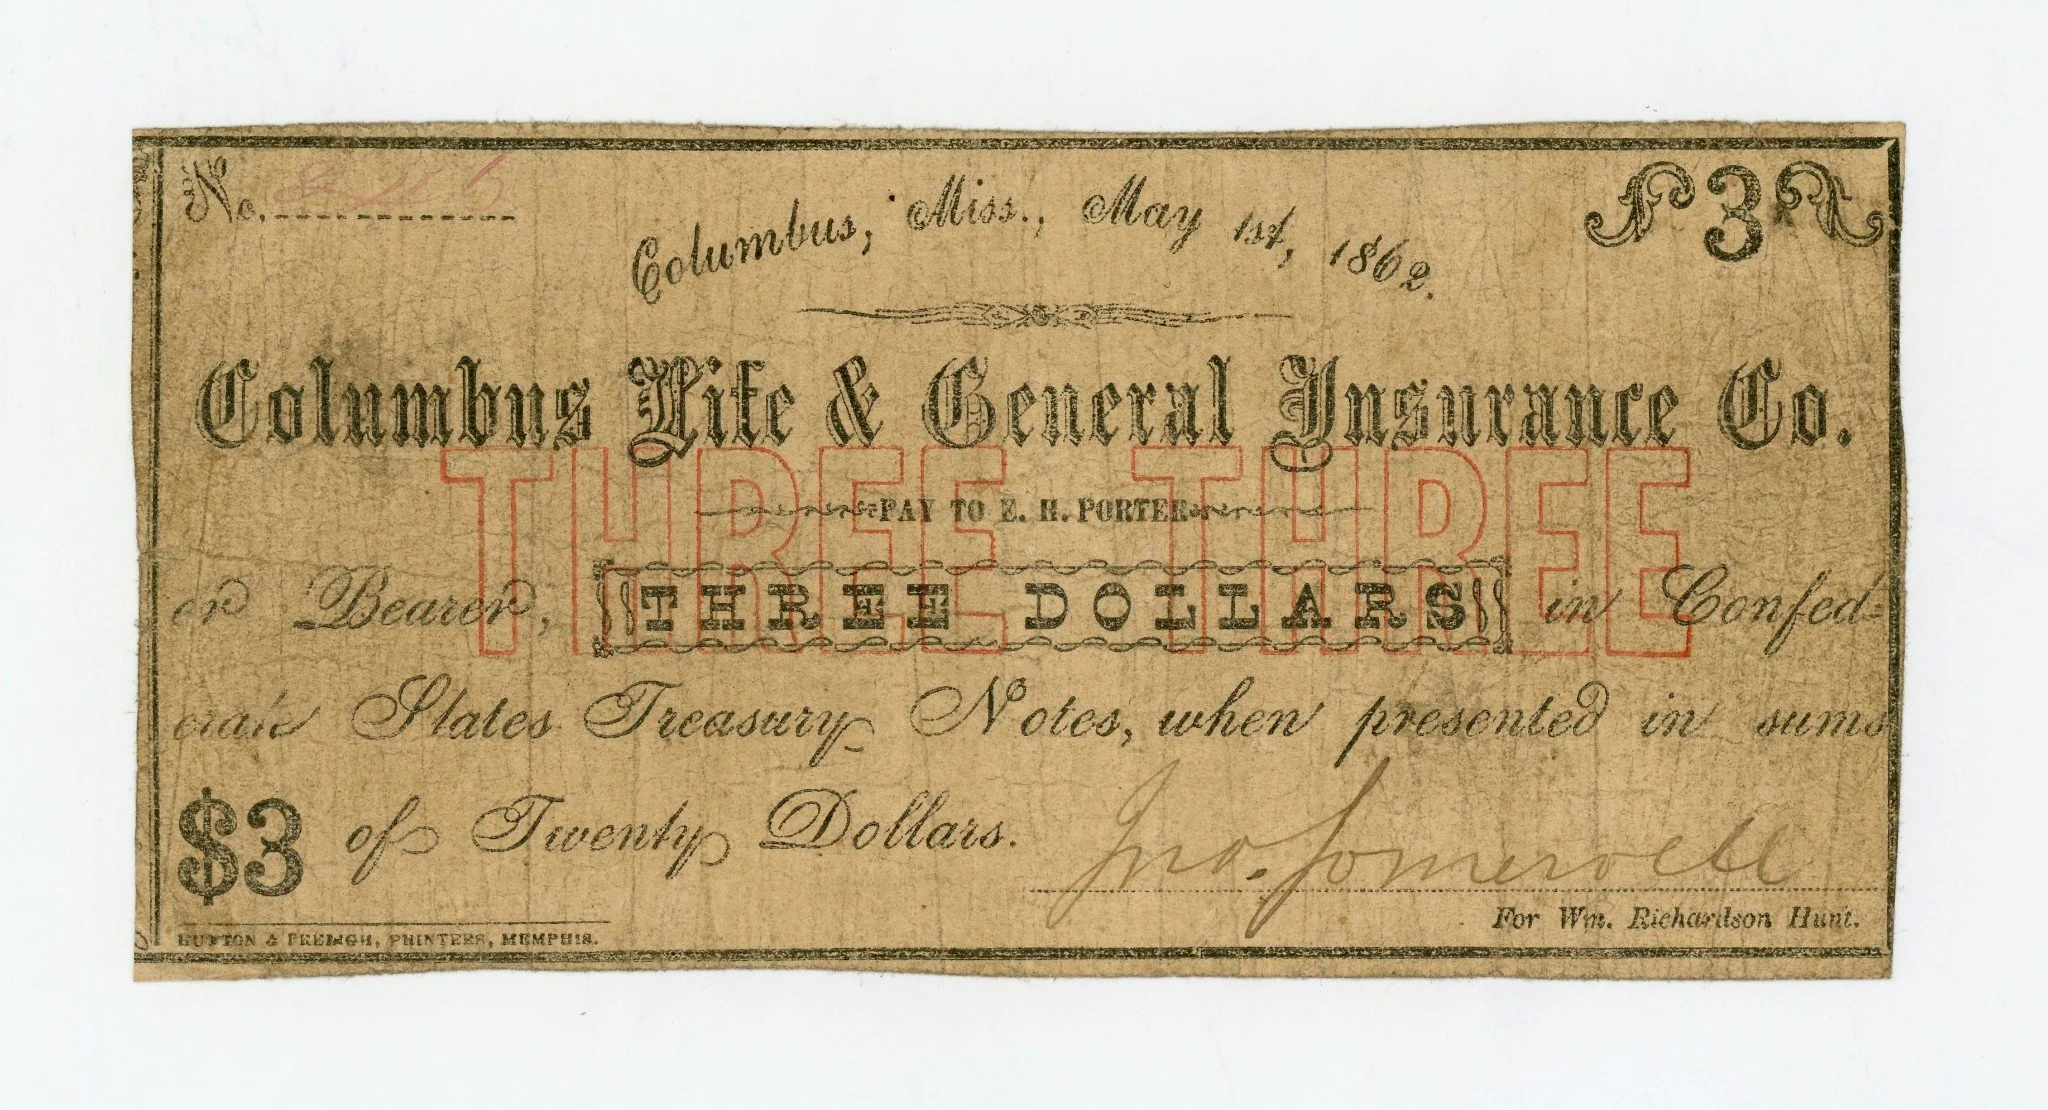 No.
Columbus, Miss., May 1st, 1862.
3
Columbus Life & General Insurance Co.
THREE THREE
PAY TO E. H. PORTER
or Bearer, THREE DOLLARS in Confed-
erate States Treasury Notes, when presented in sums
$3 of Twenty Dollars.
Jno. Somervell
For Wm. Richardson Hunt.
HUTTON & FRELIGH, PRINTERS, MEMPHIS.